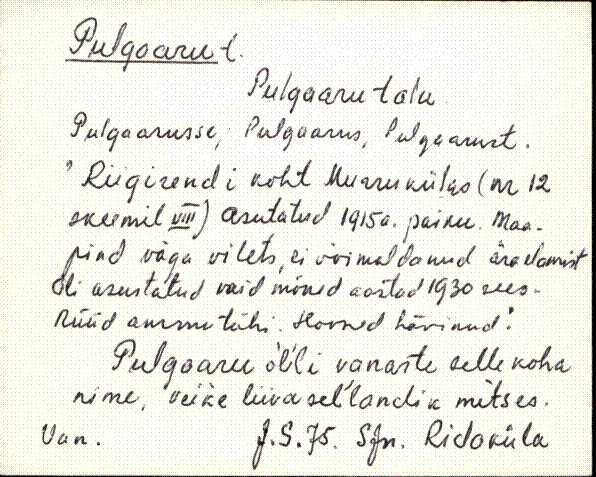 Pulgoaru t.
Pulgaaru talu
Pulgaarusse, Pulgaarus, Pulgaarust.
"Riigirendi koht Muurukülas (nr 12
skeemil VIII) asutatud 1915a. paiku. Maa-
pind väga vilets, ei võimaldanud äraelamist
Oli asustatud vaid mõned aastad 1930 sees-
Nüüd ammu tühi. Hooned hävinud".
Pulgaaru õl'li vanaste selle koha
nime, veike liiva sel'landik mõtses.
Van. J.S.75. Sjn. Ridaküla